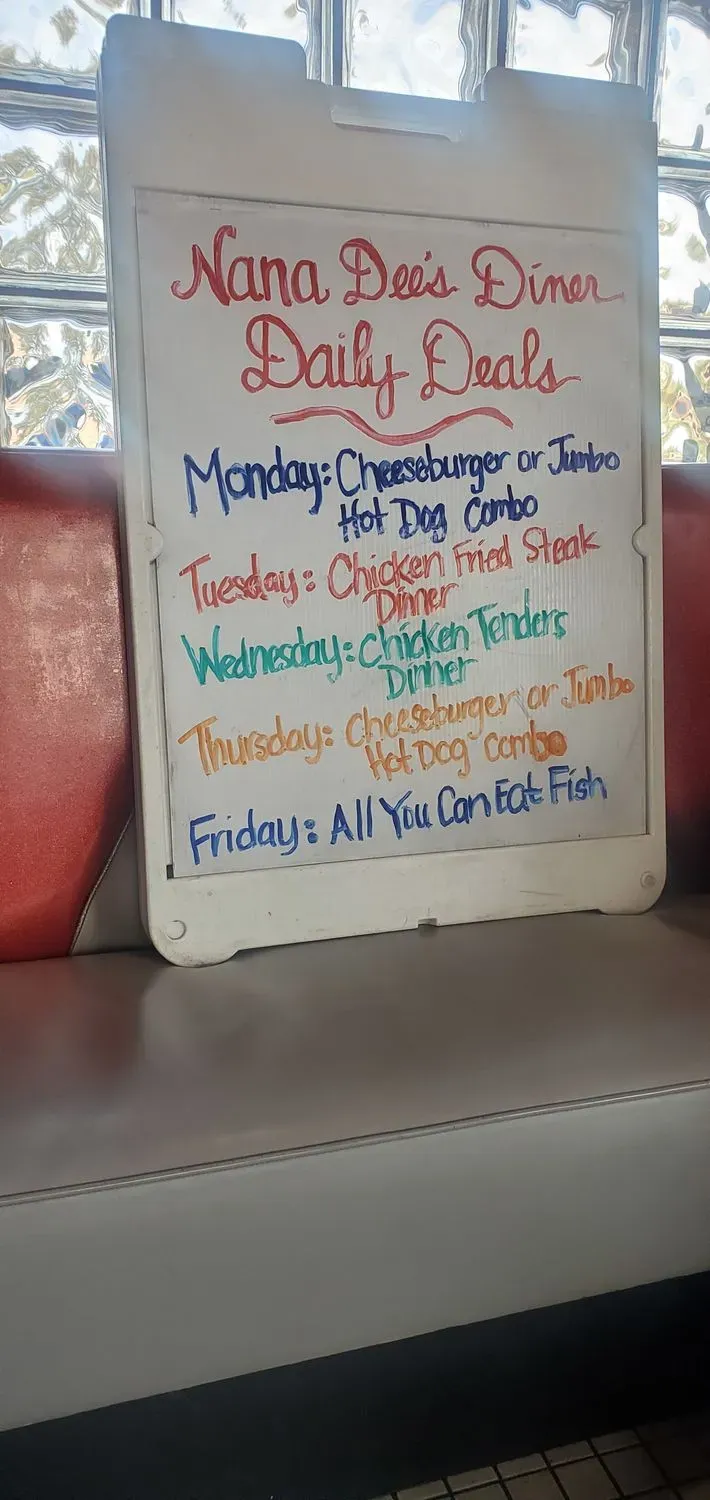 Nana Dee's Diner
Daily Deals
Monday: Cheeseburger or Jumbo
Hot Dog Combo
Tuesday: Chicken Fried Steak
Dinner
Wednesday: Chicken Tenders
Dinner
Thursday: Cheeseburger or Jumbo
Hot Dog Combo
Friday: All You Can Eat Fish